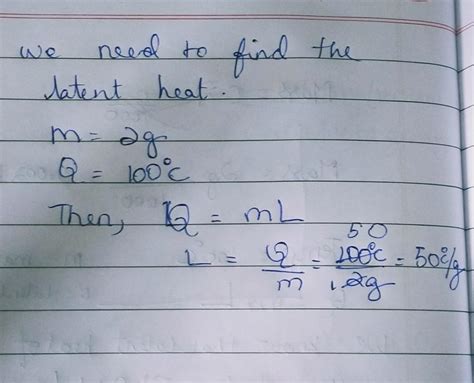 we need to find the
latent heat.
m = 2g
Q = 100°C
Then, Q = mL
L = Q/m = 100°C/2g = 50°C/g
50
1